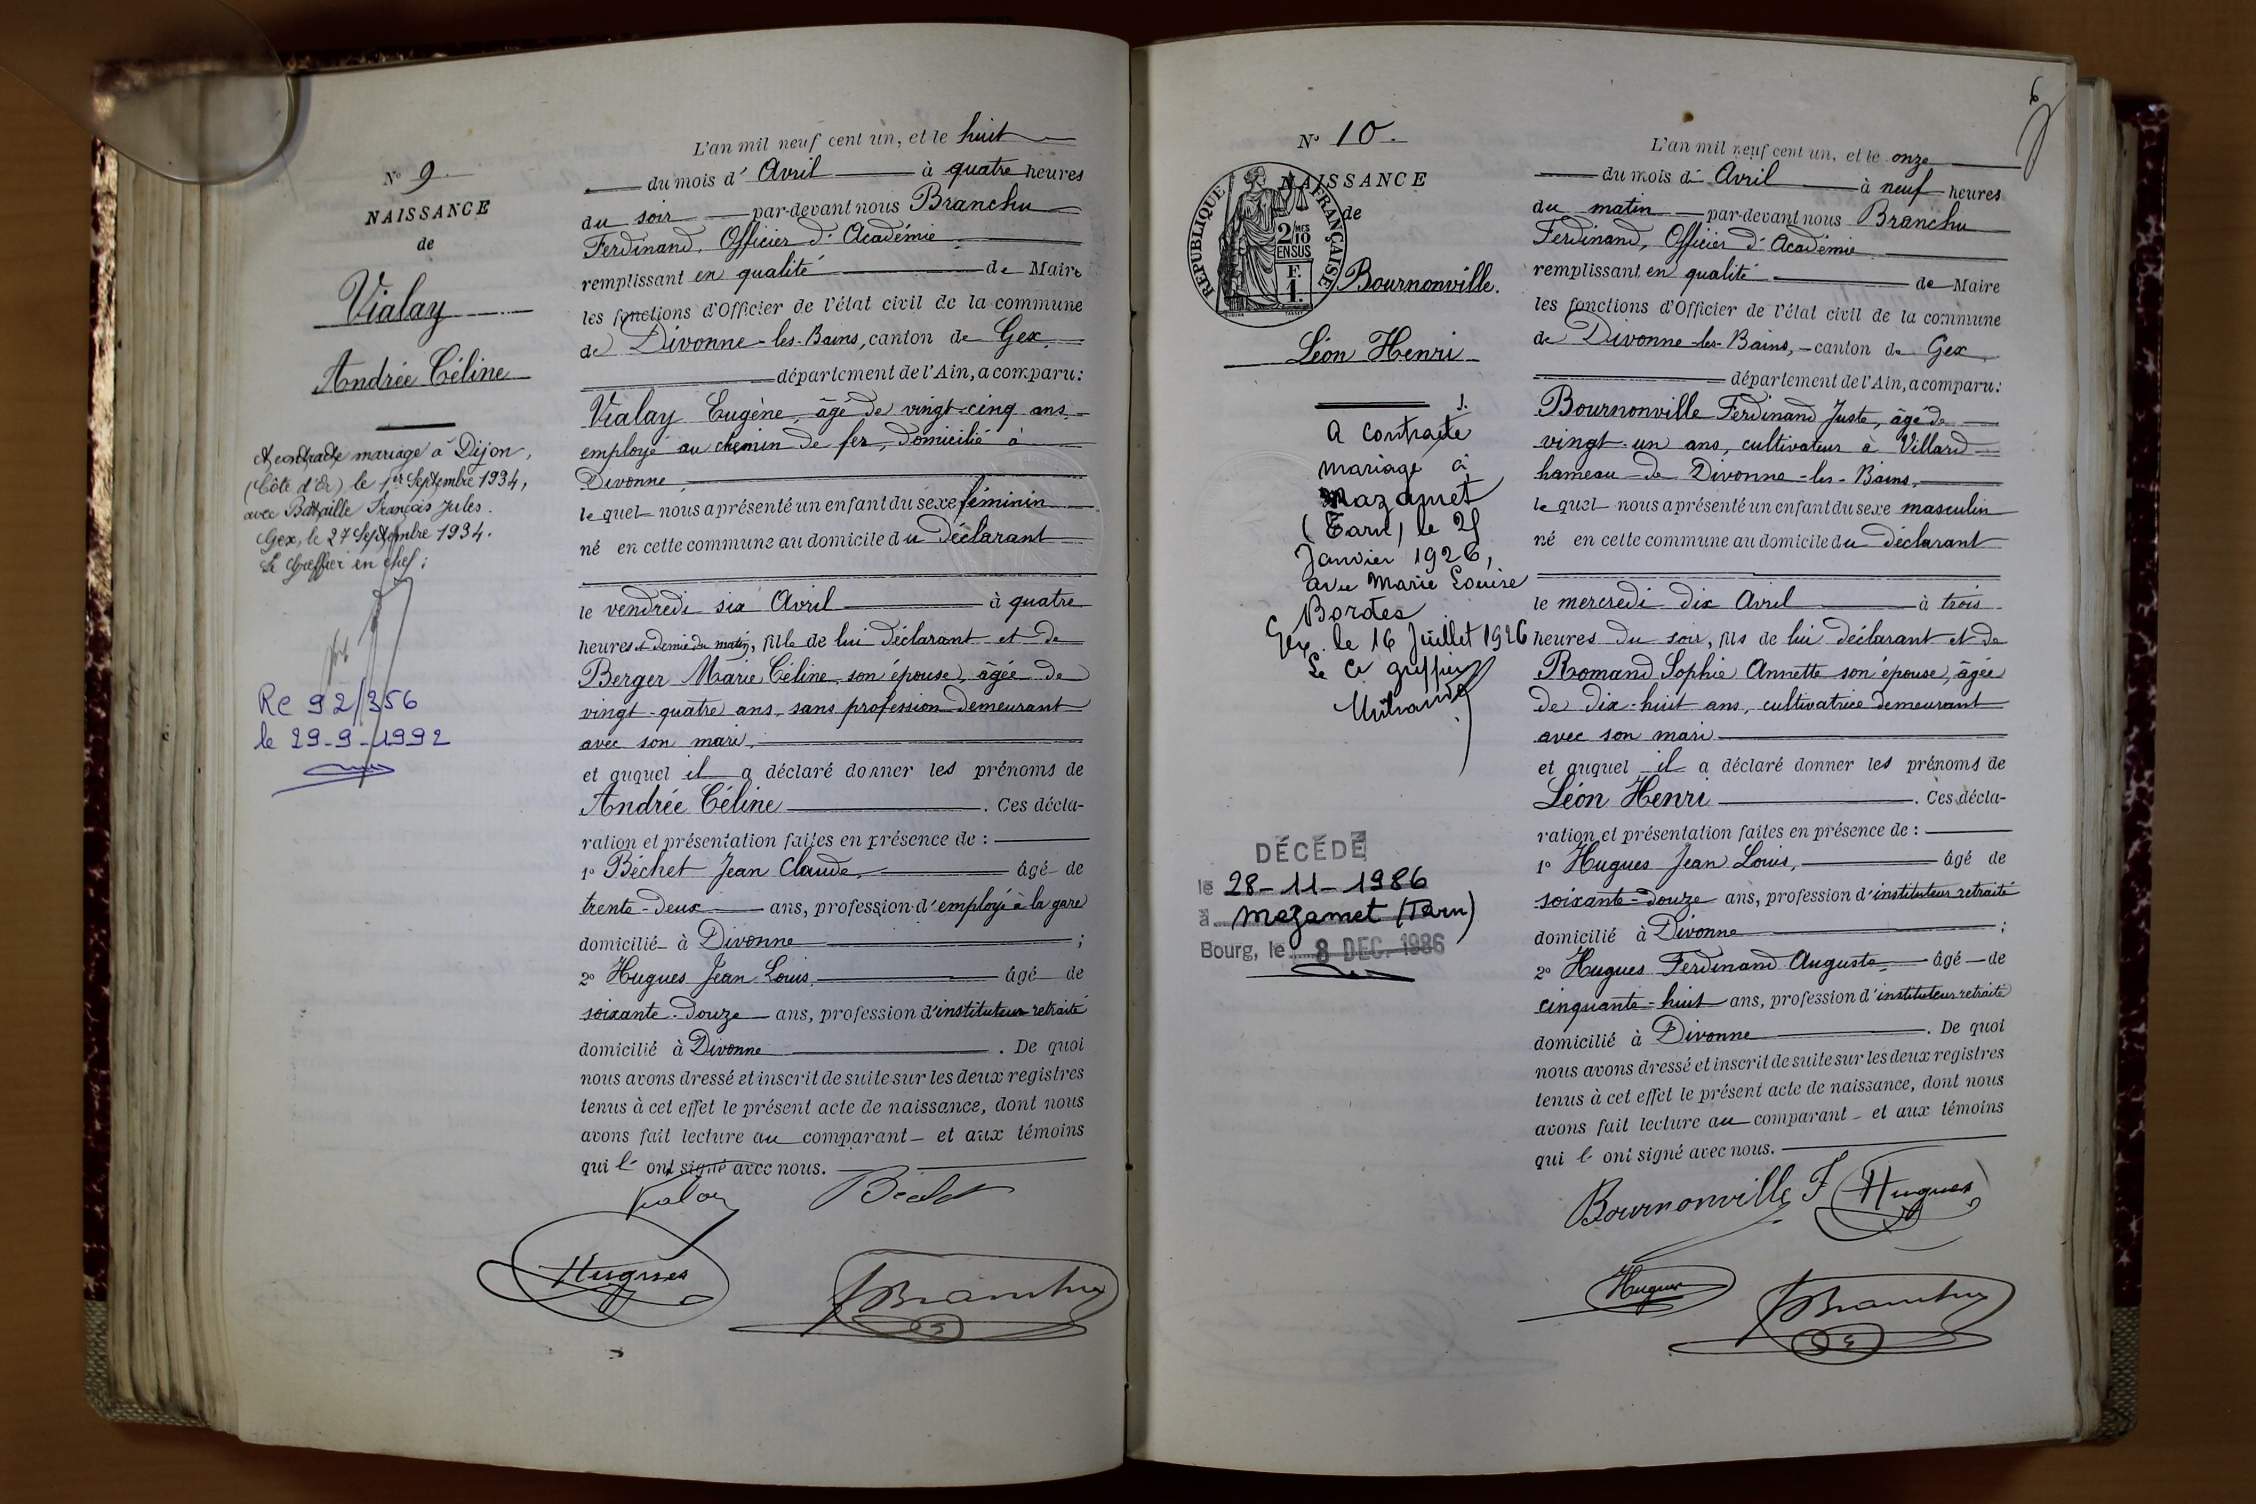 N° 9
NAISSANCE
de
Vialay
Andrée Céline
A contracté mariage à Dijon,
(Côte d'Or) le 1er Septembre 1934,
avec Bataille François Jules.
Gex, le 27 Septembre 1934.
Le Greffier en chef :
Re 92/356
le 29-9-1992
L'an mil neuf cent un, et le huit
du mois d' Avril à quatre heures
du soir par-devant nous Branchu
Ferdinand, Officier d'Académie
remplissant en qualité de Maire
les fonctions d'Officier de l'état civil de la commune
de Divonne-les-Bains, canton de Gex,
département de l'Ain, a comparu:
Vialay Eugène, âgé de vingt-cinq ans
employé au chemin de fer, domicilié à
Divonne,
le quel nous a présenté un enfant du sexe féminin
né en cette commune au domicile du Déclarant
le vendredi six Avril à quatre
heures et demie du matin, fille de lui déclarant et de
Berger Marie Céline son épouse, âgée de
vingt-quatre ans, sans profession demeurant
avec son mari,
et auquel il a déclaré donner les prénoms de
Andrée Céline. Ces décla-
ration et présentation faites en présence de :
1° Béchet Jean Claude, âgé de
trente-deux ans, profession d'employé à la gare
domicilié à Divonne ;
2° Hugues Jean Louis, âgé de
soixante-douze ans, profession d'instituteur retraité
domicilié à Divonne. De quoi
nous avons dressé et inscrit de suite sur les deux registres
tenus à cet effet le présent acte de naissance, dont nous
avons fait lecture au comparant et aux témoins
qui l' ont signé avec nous.
Vialay
Béchet
Hugues
Branchu
6
N° 10.
NAISSANCE
de
REPUBLIQUE FRANÇAISE
2/10 MES
EN SUS
F.
1.
Bournonville.
Léon Henri
1.
A contracté
mariage à
Mazamet
(Tarn) le 25
Janvier 1926,
avec Marie Louise
Bordes
Gex, le 16 Juillet 1926
Le Cs greffier
DÉCÉDÉ
le 28-11-1986
à Mazamet (Tarn)
Bourg, le 8 DEC. 1986
L'an mil neuf cent un, et le onze
du mois d' Avril à neuf heures
du matin par-devant nous Branchu
Ferdinand, Officier d'Académie
remplissant en qualité de Maire
les fonctions d'Officier de l'état civil de la commune
de Divonne-les-Bains, canton de Gex,
département de l'Ain, a comparu:
Bournonville Ferdinand Juste, âgé de
vingt-un ans, cultivateur à Villard
hameau de Divonne-les-Bains,
le quel nous a présenté un enfant du sexe masculin
né en cette commune au domicile du déclarant
le mercredi dix Avril à trois
heures du soir, fils de lui déclarant et de
Romand Sophie Annette son épouse, âgée
de dix-huit ans, cultivatrice demeurant
avec son mari
et auquel il a déclaré donner les prénoms de
Léon Henri. Ces décla-
ration et présentation faites en présence de :
1° Hugues Jean Louis, âgé de
soixante-douze ans, profession d'instituteur retraité
domicilié à Divonne ;
2° Hugues Ferdinand Auguste, âgé de
cinquante-huit ans, profession d'instituteur retraité
domicilié à Divonne. De quoi
nous avons dressé et inscrit de suite sur les deux registres
tenus à cet effet le présent acte de naissance, dont nous
avons fait lecture au comparant et aux témoins
qui l' ont signé avec nous.
Bournonville F
Hugues
Hugues
Branchu